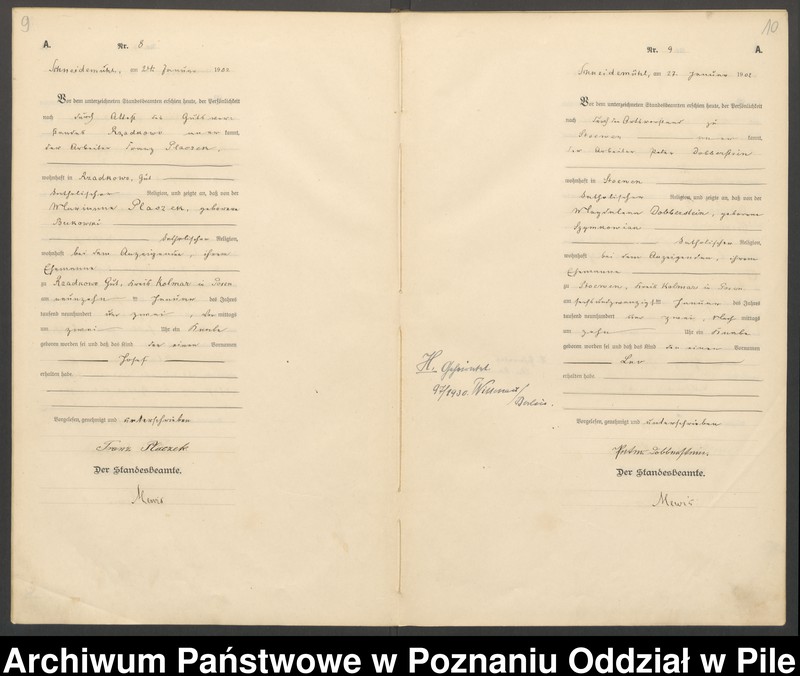 9
A.
Nr. 8
Schneidemühl, am 24ten Januar 1902
Vor dem unterzeichneten Standesbeamten erschien heute, der Persönlichkeit
nach durch Attest des Gutsvor-
standes Rzadkowo aner kannt,
der Arbeiter Franz Placzek,
wohnhaft in Rzadkowo, Gut
katholischen Religion, und zeigte an, daß von der
Marianna Placzek, geborene
Bukowski
katholischen Religion,
wohnhaft bei dem Anzeigenden, ihrem
Ehemanne
zu Rzadkowo Gut, Kreis Kolmar i. Posen
am neunzehn ten Januar des Jahres
tausend neunhundert und zwei, Vor mittags
um zwei Uhr ein Knabe
geboren worden sei und daß das Kind den einen Vornamen
Josef
erhalten habe.
Vorgelesen, genehmigt und unterschrieben
Franz Placzek
Der Standesbeamte.
Mewis
10
Nr. 9
A.
Schneidemühl, am 27. Januar 1902
Vor dem unterzeichneten Standesbeamten erschien heute, der Persönlichkeit
nach durch den Ortsvorstand zu
Stoewen aner kannt,
der Arbeiter Peter Dobberstein
wohnhaft in Stoewen
katholischen Religion, und zeigte an, daß von der
Magdalena Dobberstein, geborene
Szymkowiak
katholischen Religion,
wohnhaft bei dem Anzeigenden, ihrem
Ehemanne
zu Stoewen, Kreis Kolmar i. Posen
am sechsundzwanzigsten Januar des Jahres
tausend neunhundert und zwei, Nach mittags
um zehn Uhr ein Knabe
geboren worden sei und daß das Kind den einen Vornamen
Leo
erhalten habe.
H. Geheiratet
97/1930.
Berlin.
Vorgelesen, genehmigt und unterschrieben
Peter Dobberstein.
Der Standesbeamte.
Mewis
Archiwum Państwowe w Poznaniu Oddział w Pile